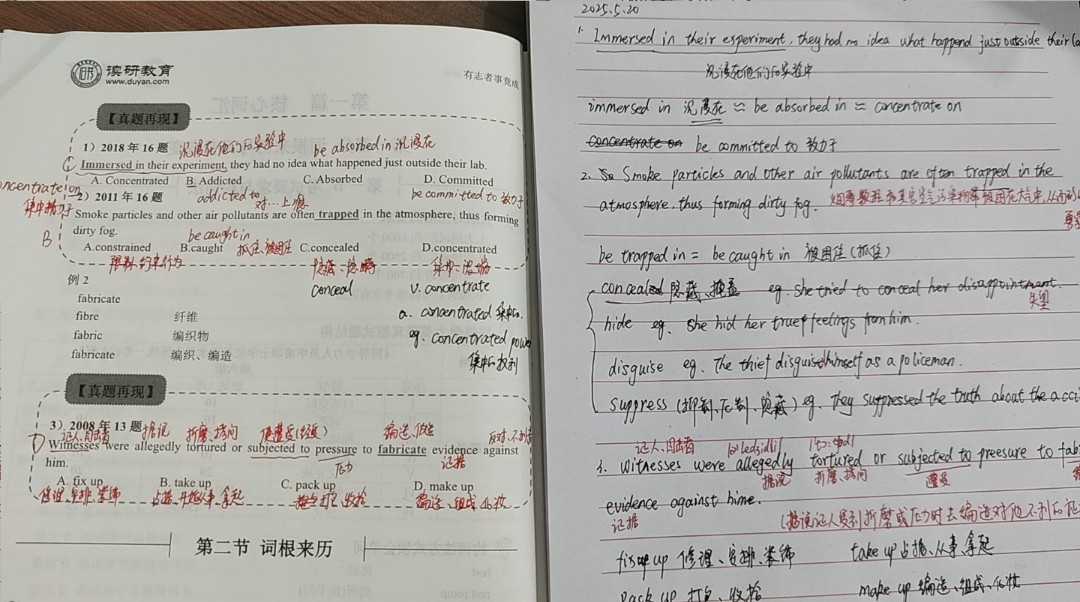 读研教育
www.duyan.com
有志者事竟成
【真题再现】
1）2018 年 16 题 沉浸在他们的实验中 be absorbed in 沉浸在
C Immersed in their experiment, they had no idea what happened just outside their lab.
A. Concentrated B. Addicted C. Absorbed D. Committed
ncentrate on 集中精力于 addicted to 对…上瘾 be committed to 致力于
2）2011 年 16 题
Smoke particles and other air pollutants are often trapped in the atmosphere, thus forming
dirty fog.
B be caught in 抓住、被困住
A.constrained B.caught C.concealed D.concentrated
隐藏、隐瞒 集中、浓缩
conceal v. concentrate
例 2
a. concentrated 集中的.
fabricate
fibre 纤维
eg. concentrated power
fabric 编织物
集中的权利
fabricate 编织、编造
【真题再现】
3）2008 年 13 题
D 证人、目击者 据说 折磨、拷问 使遭受(经受) 编造、伪造
Witnesses were allegedly tortured or subjected to pressure to fabricate evidence against
him.
压力 证据
A. fix up B. take up C. pack up D. make up
修理、安排、装饰 占据、开始从事、拿起 打包、收拾 编造、组成、化妆
第二节 词根来历
2025.5.20
1. Immersed in their experiment, they had no idea what happend just outside their la
沉浸在他们的实验中
immersed in 沉浸在 ≈ be absorbed in ≈ concentrate on
concentrate on be committed to 致力于
2. Smoke particles and other air pollutants are often trapped in the
atmosphere, thus forming dirty fog. 烟雾颗粒和其他空气污染物常被困在大气中,从而
be trapped in = be caught in 被困住(抓住)
concealed 隐藏、掩盖 eg. She tried to conceal her disappointment.
失望
hide eg. She hid her true feelings from him.
disguise eg. The thief disguised himself as a policeman.
suppress (抑制、压制、隐藏) eg. They suppressed the truth about the acci
证人、目击者
3. Witnesses were allegedly tortured or subjected to preesure to fab
据说 折磨、拷问 遭受
evidence against hime.
证据
(据说证人受到折磨或压力时去编造对他不利的证
fix up 修理、安排、装饰 take up 占据、从事、拿起
pack up 打包、收拾 make up 编造、组成、化妆